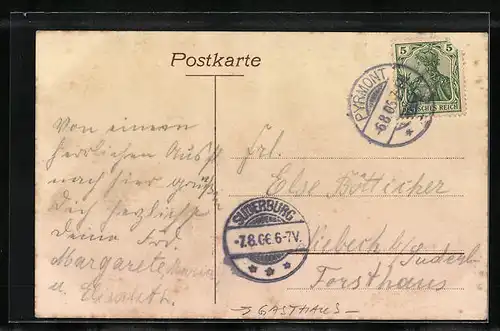 Postkarte
5 5
DEUTSCHES REICH
PYRMONT
6.8.06.
Von einem
herrlichen
nach hier
Dich herzlichst
deine Frd.
Margarete
u. Elisabeth.
Frl.
Else Böttcher
Forsthaus
SUDERBURG
-7.8.06.6-7V.
→ GASTHAUS -